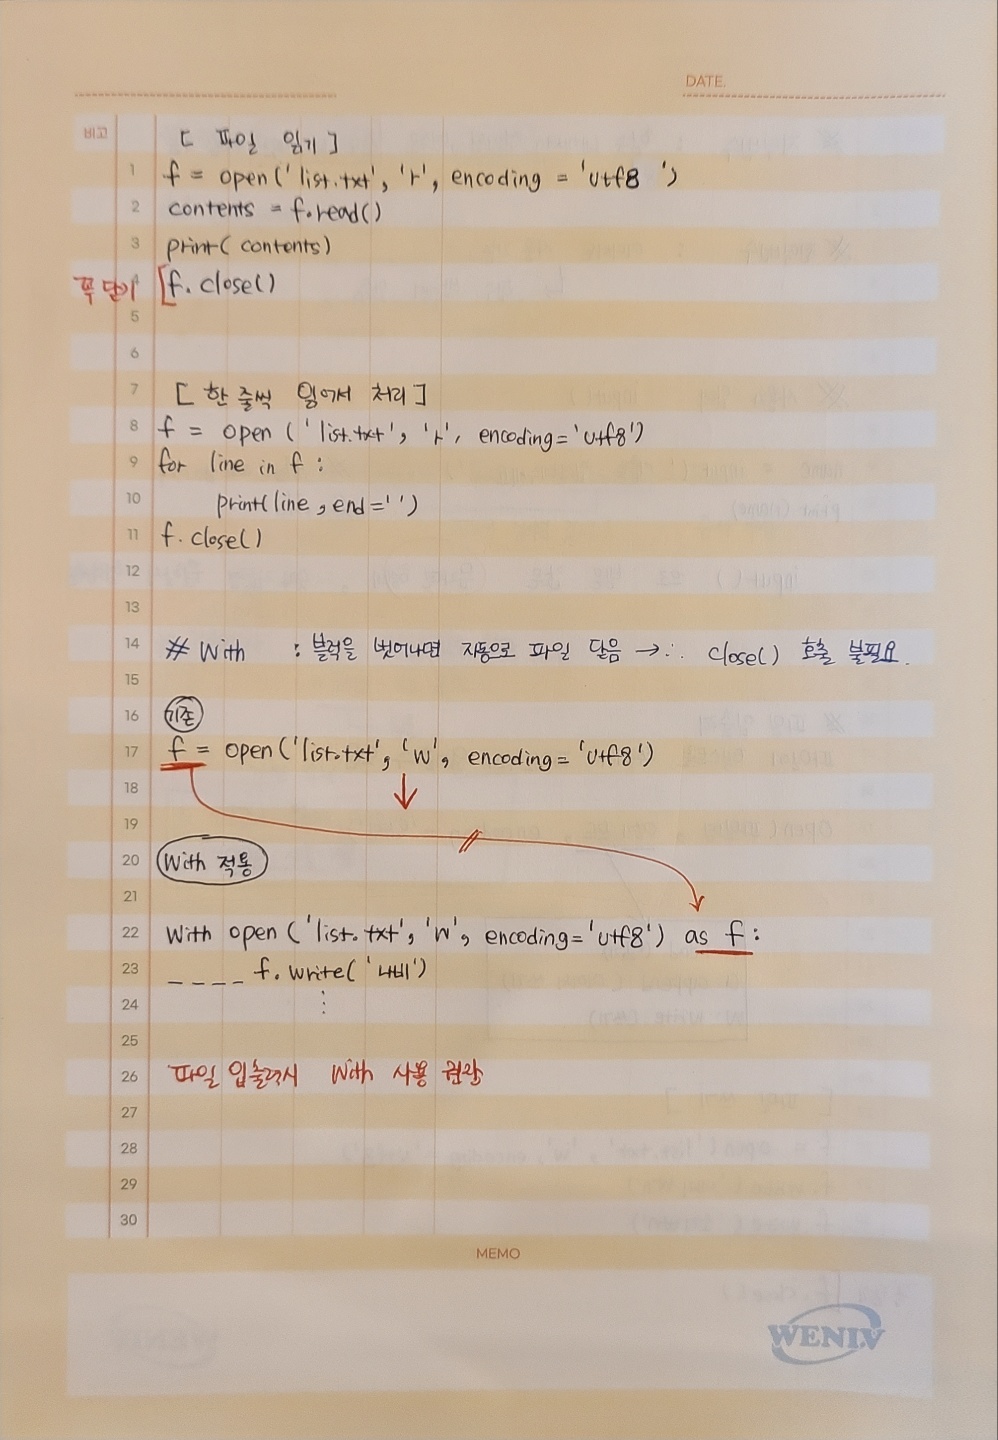 DATE.
비고
[ 파일 읽기 ]
1 f = open('list.txt', 'r', encoding = 'utf8 ')
2 contents = f.read()
3 print( contents)
꼭 닫기 4 [f. close()
5
6
7 [ 한 줄씩 읽어서 처리 ]
8 f = open ('list.txt', 'r', encoding='utf8')
9 for line in f :
10 print(line, end='')
11 f. close()
12
13
14 # With : 블럭을 벗어나면 자동으로 파일 닫음 →∴ close() 호출 불필요.
15
16 기존
17 f = open('list.txt', 'w', encoding='utf8')
18 ↓
19
20 With 적용
21
22 With open ('list.txt', 'w', encoding='utf8') as f :
23 _ _ _ _ f. write( '나비')
24 ⋮
25
26 파일 입출력시 With 사용 권장
27
28
29
30
MEMO
WENIV